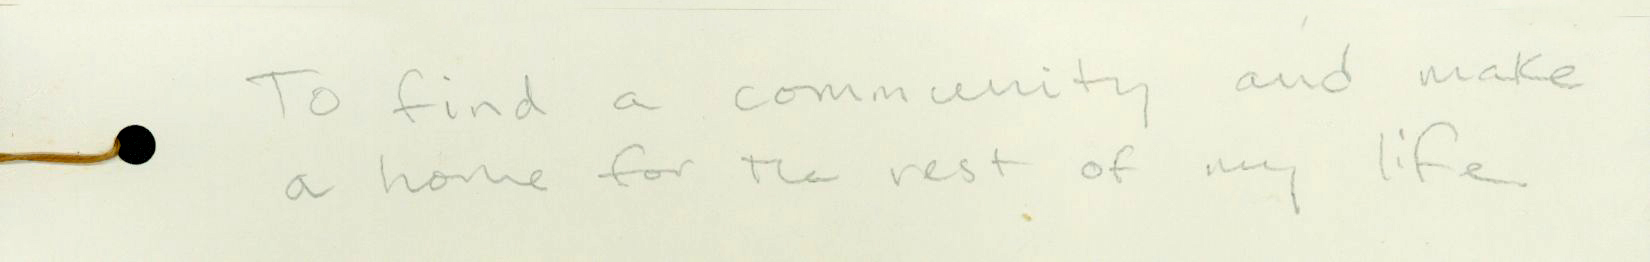 To find a community and make
a home for the rest of my life